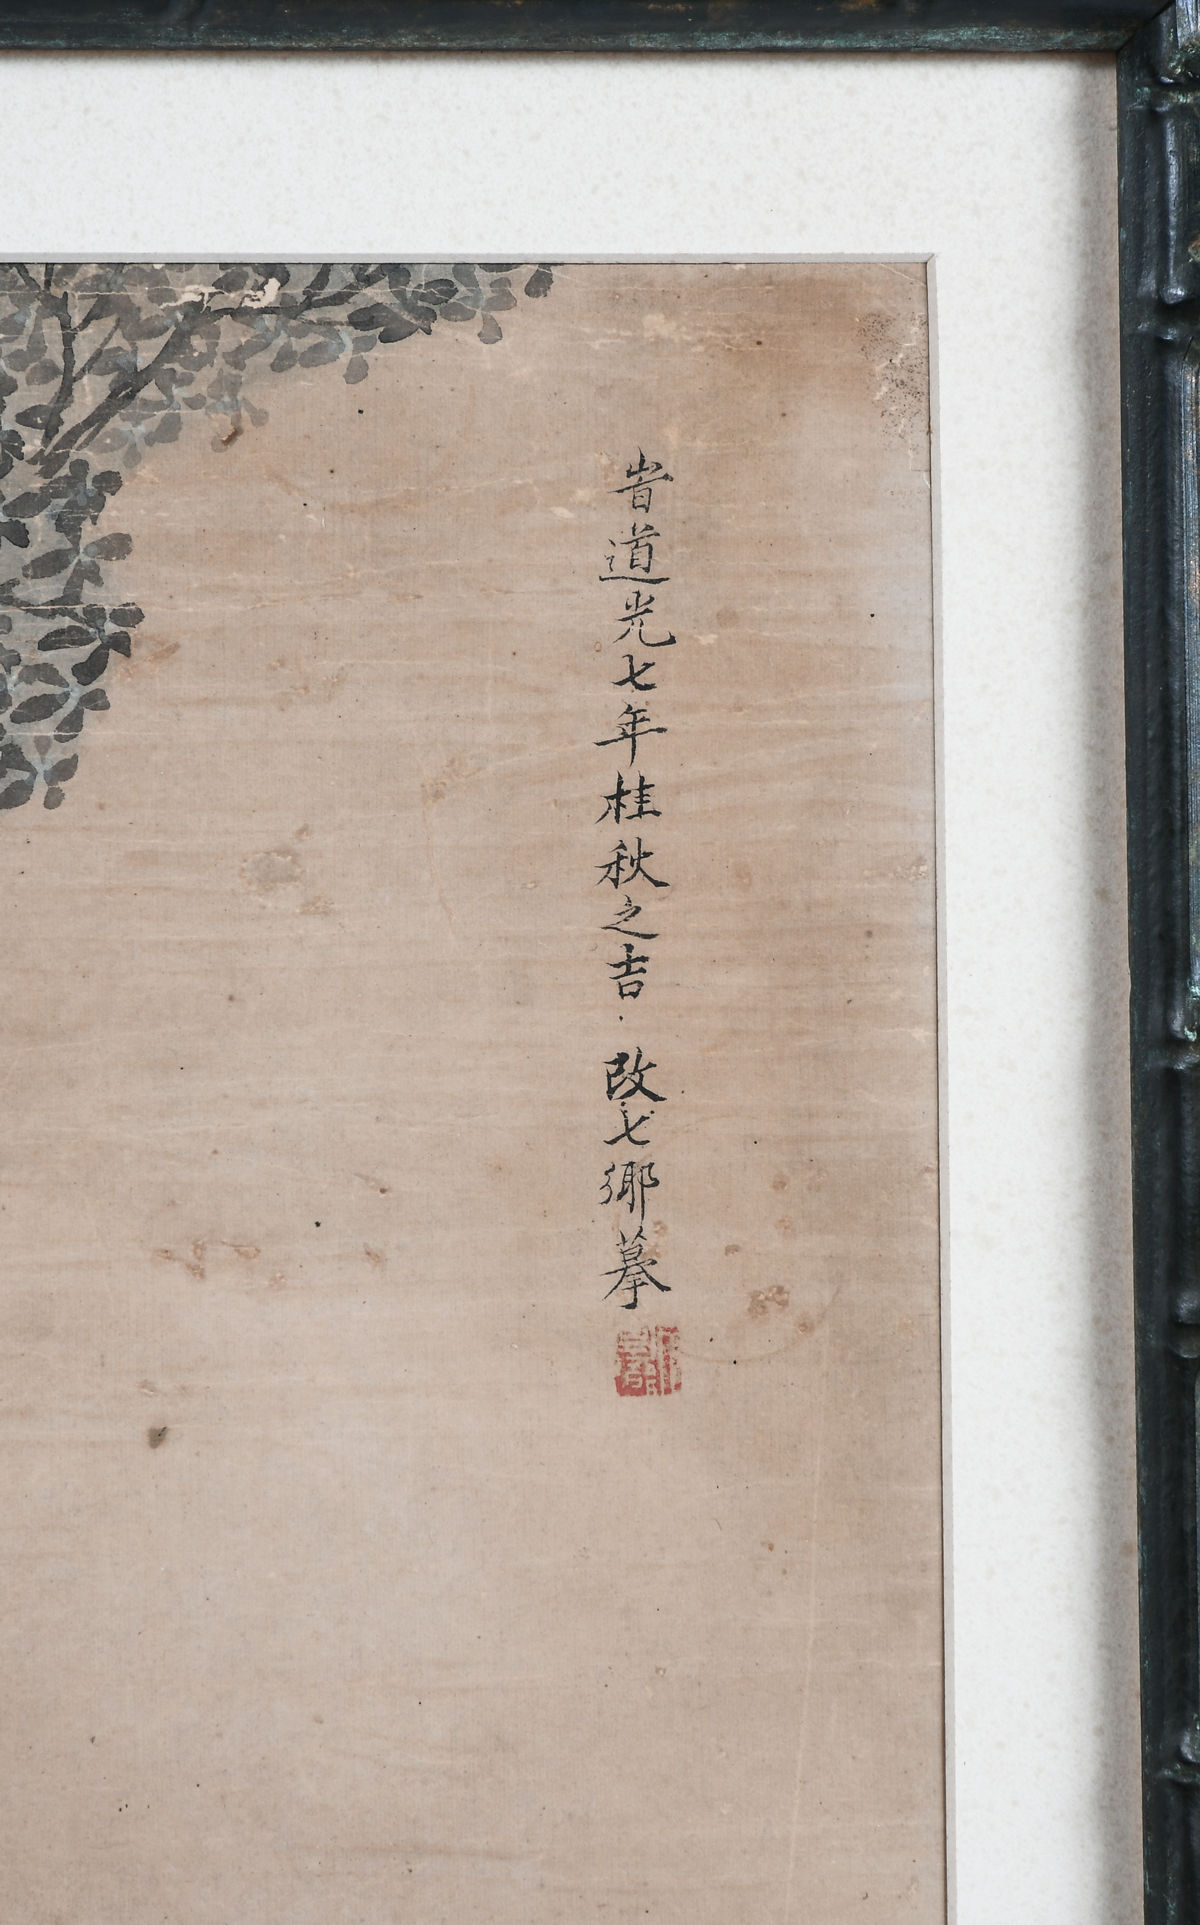 旹道光七年桂秋之吉 改七鄉摹